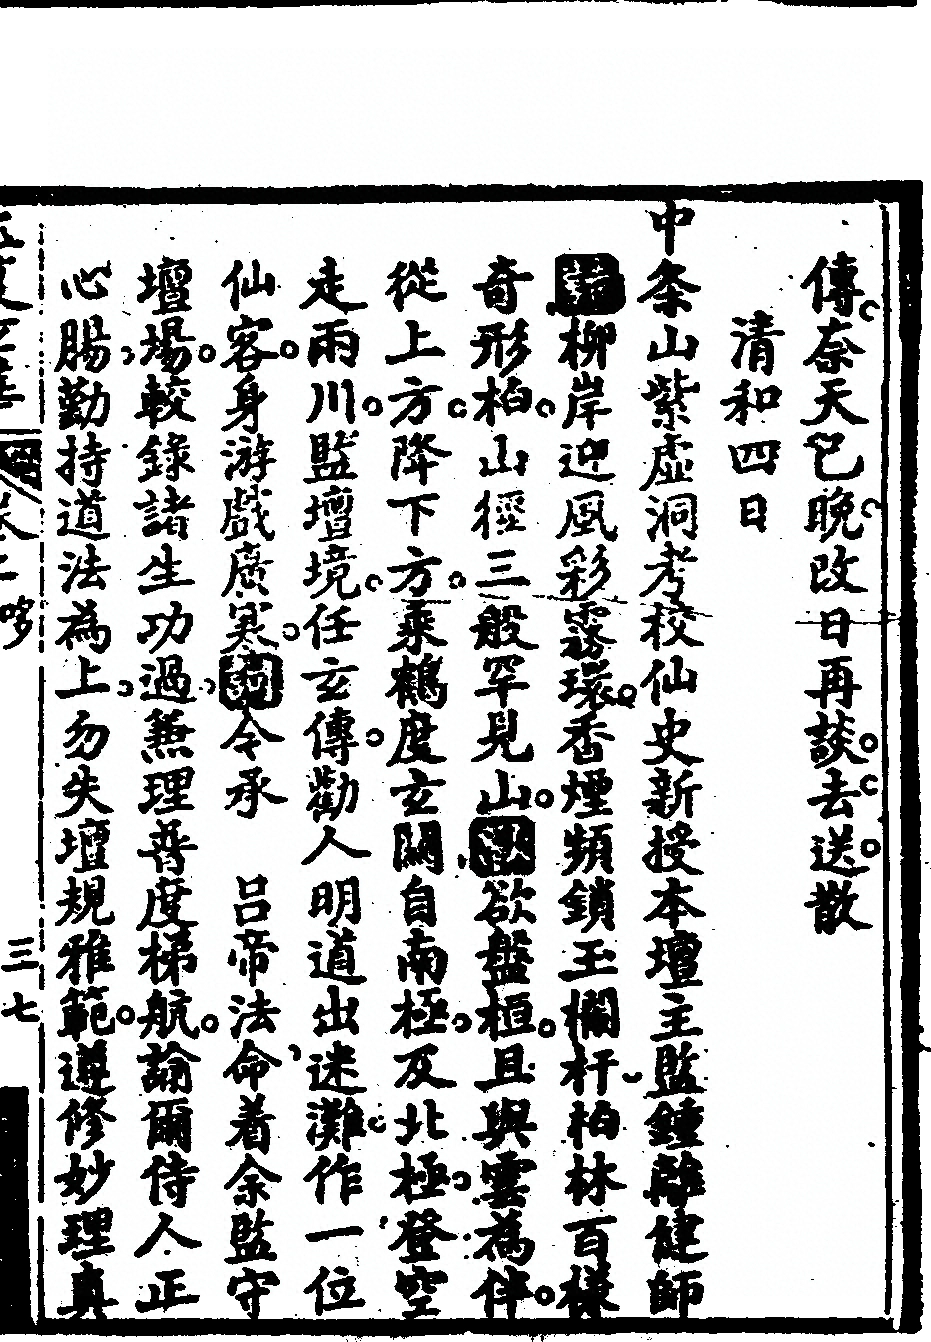 傳奈天已晚改日再談去送散
清和四日
中条山紫虛洞考校仙史新授本壇主監鍾離健師
柳岸迎風彩霧環香煙頻鎖玉欄杆柏林百樣
奇形柏山徑三般罕見山 欲盤桓且與雲為伴
從上方降下方乘鶴度玄關自南極及北極登空
走兩川監壇境任玄傳勸人明道出迷灘作一位
仙客身游戲廣寒 令承 呂帝法命着余監守
壇場較錄諸生功過兼理普度梯航諭爾侍人正
心腸勤持道法為上勿失壇規雅範遵修妙理真
三七